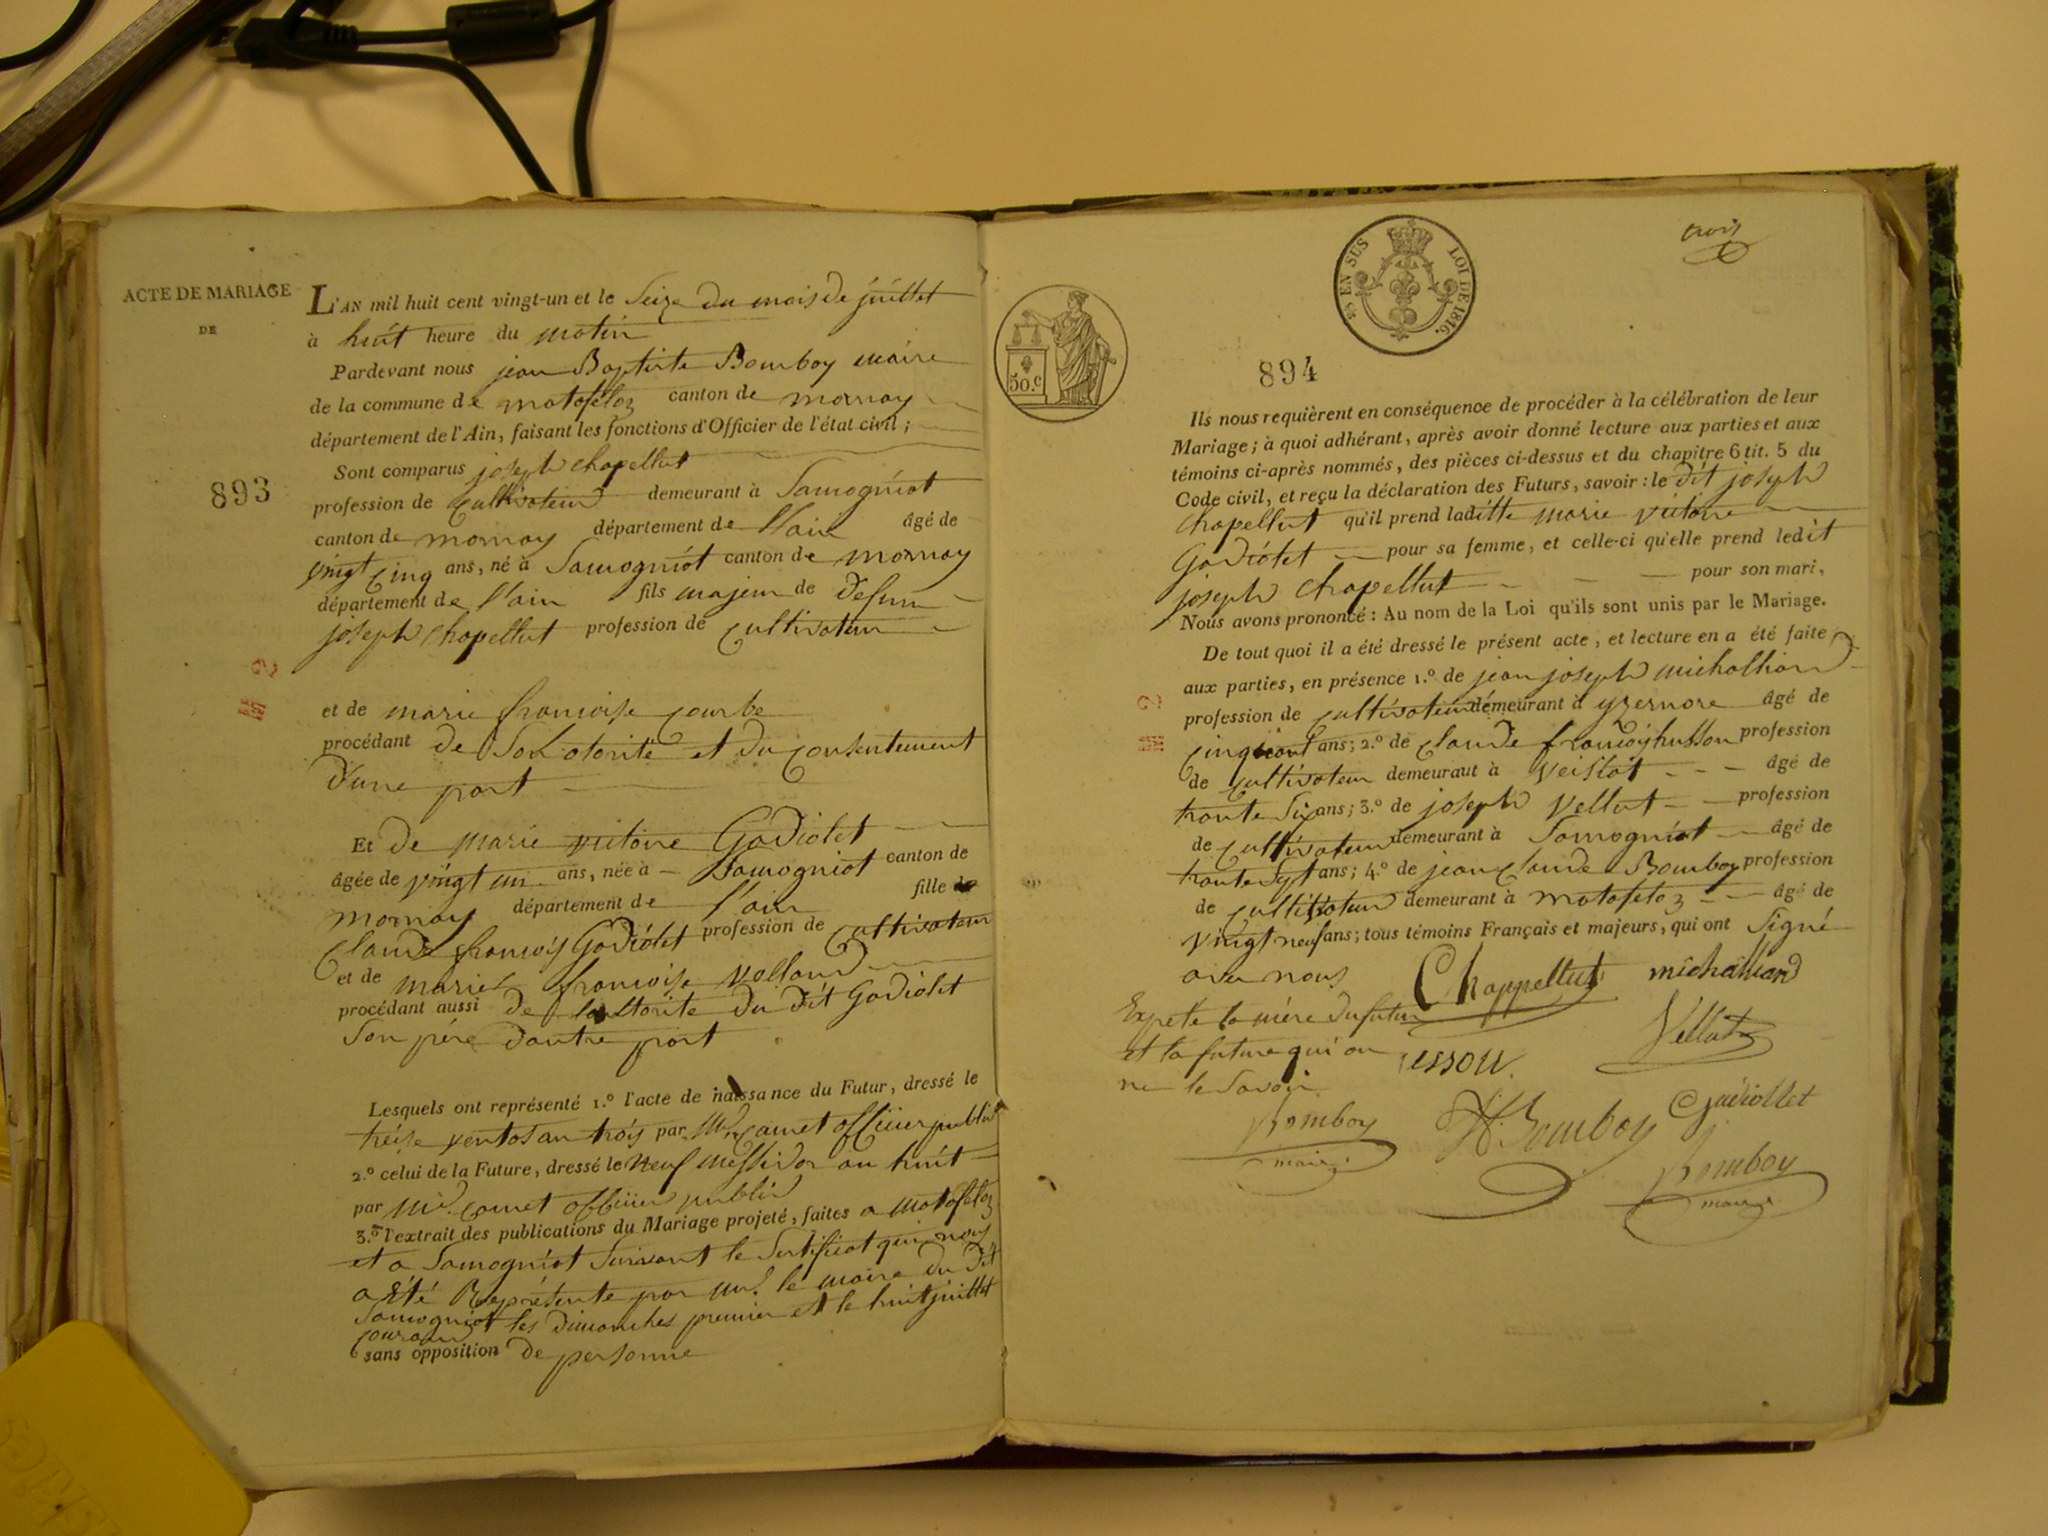 ACTE DE MARIAGE
DE
893
L'AN mil huit cent vingt-un et le Seize du mois de juillet
à huit heure du matin
Pardevant nous jean Baptiste Bomboy maire
de la commune de matafeloz canton de mornay
département de l'Ain, faisant les fonctions d'Officier de l'état civil;
Sont comparus joseph chapellut
profession de cultivateur demeurant à Samogniat
canton de mornay département de l'ain âgé de
vingt cinq ans, né à Samogniat canton de mornay
département de l'ain fils majeur de defun
joseph chapellut profession de cultivateur
et de marie francoise courbe
procédant de Son otorité et du consentement
d'une part
Et de marie victoire Gadiolet
âgée de vingt un ans, née à Samogniat canton de
mornay département de l'ain fille de
Claude francois Gadiolet profession de cultivateur
et de marie francoise volland
procédant aussi de lauttorité du dit Gadiolet
Son père d'autre part
Lesquels ont représenté 1.º l'acte de naissance du Futur, dressé le
treise ventos an trois par Mr. camet officier public
2.º celui de la Future, dressé le neuf messidor an huit
par Mr. camet officier public
3.º l'extrait des publications du Mariage projeté, faites a matafeloz
et a Samogniat suivant le Sertificat qui nous
a été Représenté par mr. le maire du dit
Samogniat les dimanches premier et le huit juillet
couran
sans opposition de personne
trois
EN SUS LOI DE 1816.
50.C
894
Ils nous requièrent en conséquence de procéder à la célébration de leur
Mariage; à quoi adhérant, après avoir donné lecture aux parties et aux
témoins ci-après nommés, des pièces ci-dessus et du chapitre 6 tit. 5 du
Code civil, et reçu la déclaration des Futurs, savoir: le dit joseph
chapellut qu'il prend laditte marie victoire
Gadiolet pour sa femme, et celle-ci qu'elle prend ledit
joseph chapellut pour son mari,
Nous avons prononcé: Au nom de la Loi qu'ils sont unis par le Mariage.
De tout quoi il a été dressé le présent acte, et lecture en a été faite
aux parties, en présence 1.º de jean joseph michalliard
profession de cultivateur demeurant à yzernore âgé de
cinquant ans; 2.º de claude francois husson profession
de cultivateur demeurant à veisiat âgé de
trante six ans; 3.º de joseph vellut profession
de cultivateur demeurant à Samogniat âgé de
trante sept ans; 4.º de jean claude Bomboy profession
de cultivateur demeurant à matafeloz âgé de
vingt neuf ans; tous témoins Français et majeurs, qui ont signé
avec nous Chappellut michalliard
Expete la mère du futur Vellut
et la future qui on
ne le Savoir
Bomboy
maire
Bomboy
Gadiollet
Bomboy
maire